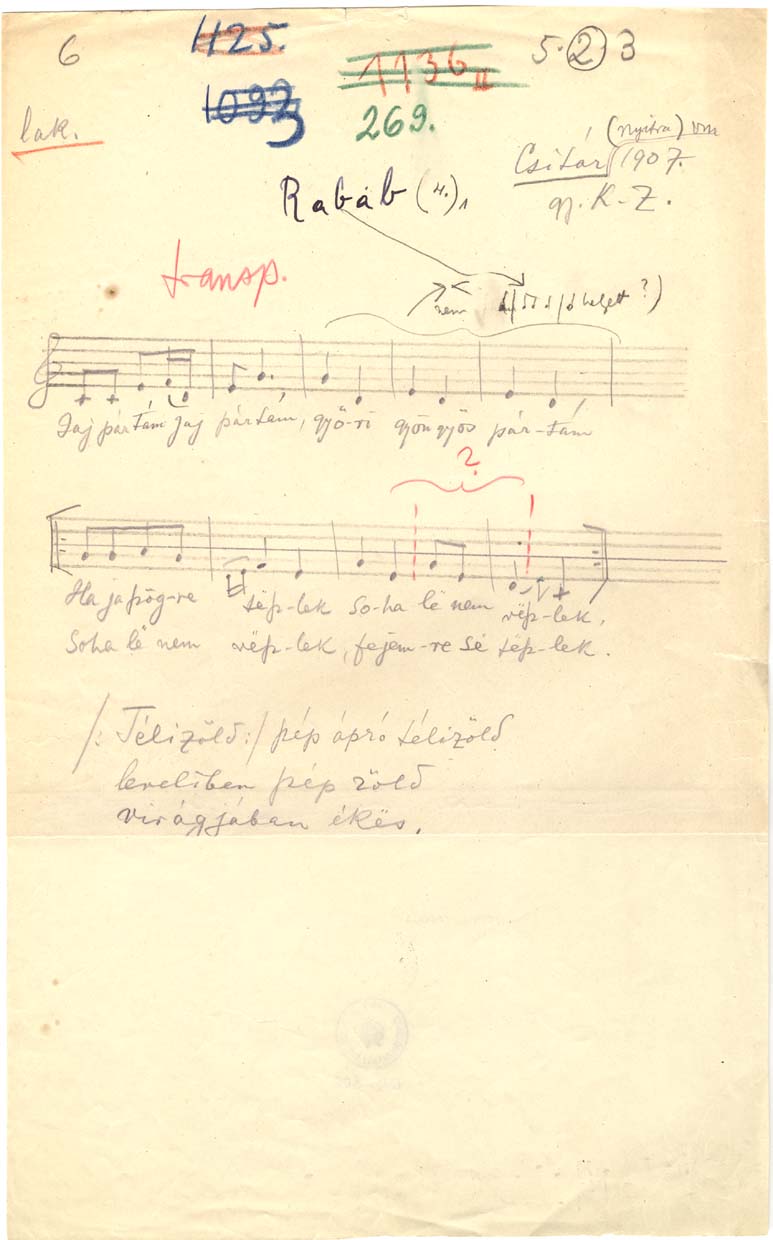 6 1125. 1136 II 5 2 3
1093
269.
lak.
(nyitra) vm
Csitár 1907.
gy. K-Z.
Rabáb (4.)1
transp.
nem helyett ?)
Jaj pártám jaj pártám, győ-ri gyöngyös pár-tám
?
Ha ja pög-re tép-lek so-ha lë nem vëp-lek,
Soha lë nem vëp-lek, fejem-re së tép-lek.
/: Télizöld:/ pép ápró télizöld
leveliben pép zöld
virágjában ékës.